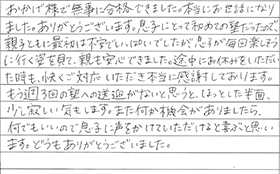 おかげ様で無事に合格できました。本当にお世話になり
ました。ありがとうございます。息子にとって初めての塾だったので
親子ともに最初は不安でいっぱいでしたが息子が毎回楽しそう
に行く姿を見て、親も安心できました。途中にお休みをいただい
た時も、快くご対応いただき本当に感謝しております。
もう週3回の塾への送迎がないと思うと、ほっとした半面、
少し寂しい気もします。また何か機会がありましたら、
何でもいいので息子に声をかけていただけると喜ぶと思い
ます。どうもありがとうございました。